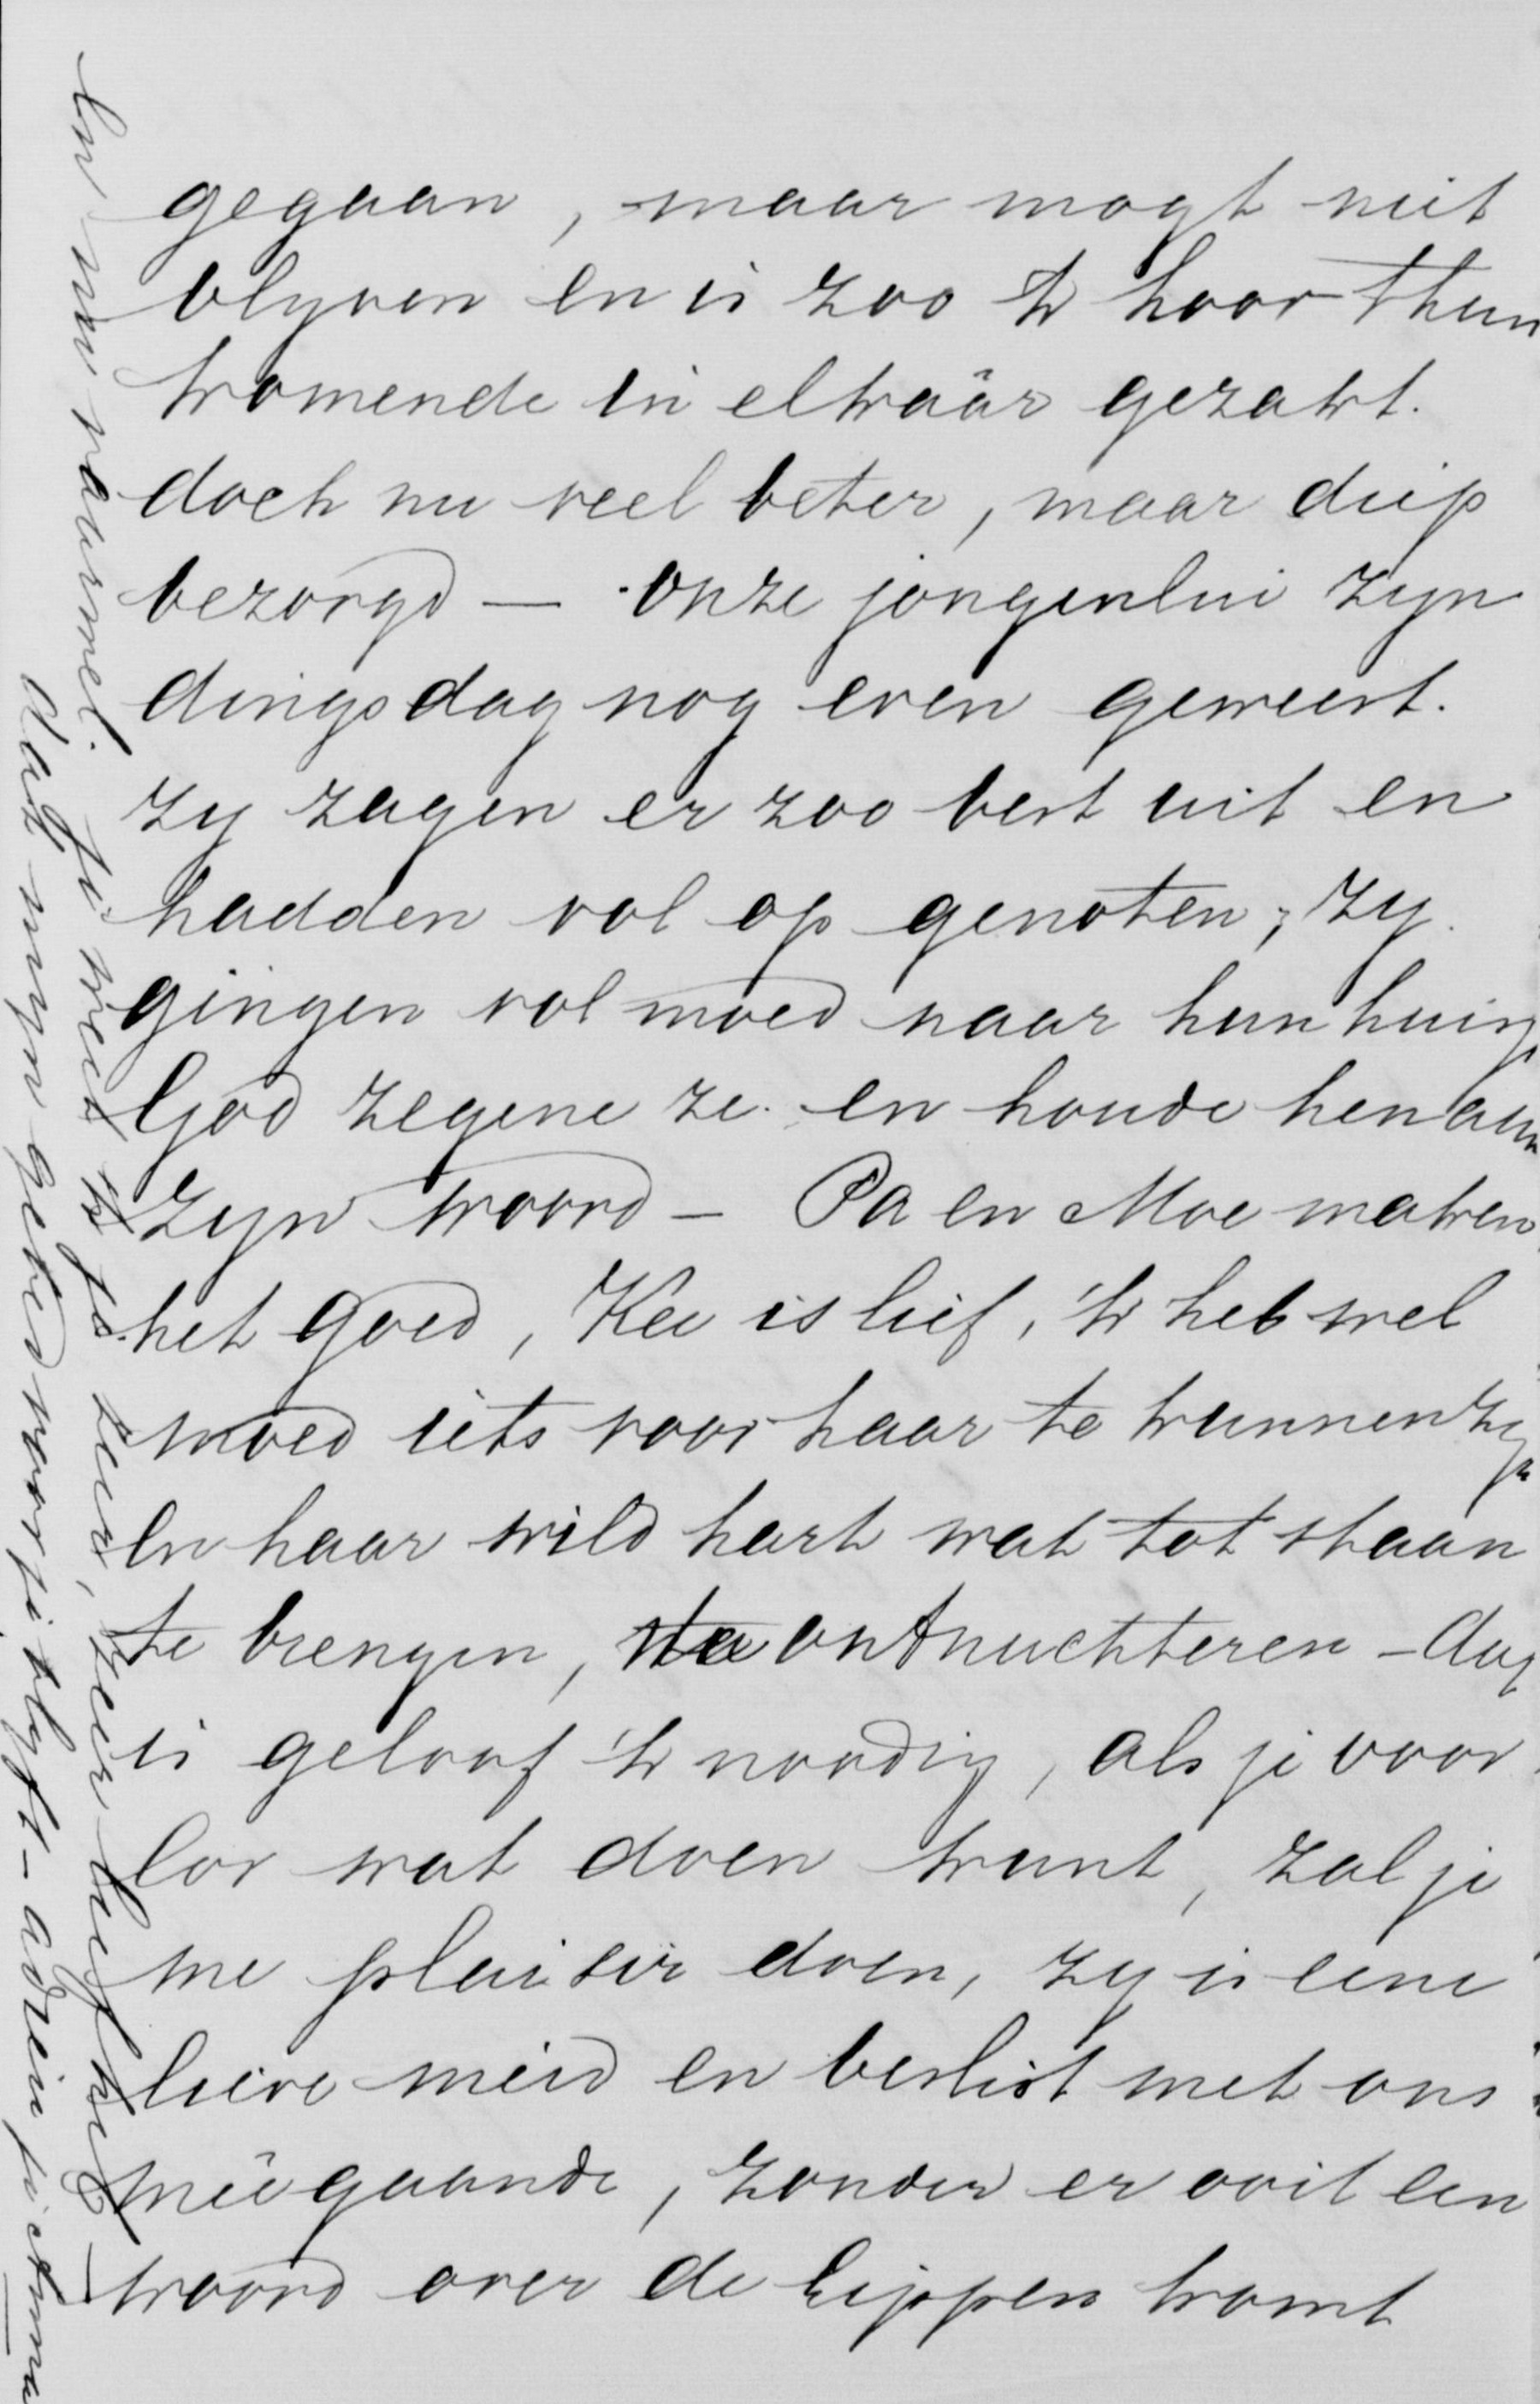 gegaan, maar mogt niet
blyven en is zoo 'k hoor thuis
komende in elkaâr gezakt.
doch nu veel beter, maar diep
bezorgd — onze jongenlui zyn
dingsdag nog even geweest.
zy zagen er zoo best uit en
hadden vol op genoten; zy
gingen vol moed naar hun huis
God zegene ze en houde hen aan
zyn woord — Pa en Moe maken
het goed, Kee is lief, 'k heb wel
moed iets voor haar te kunnen zyn
en haar wild hart wat tot staan
te brengen, ontnuchteren — dag
is geloof 'k noodig, als je voor
Cor wat doen kunt, zal je
me pleisier doen, zy is eene
lieve meid en beslist met ons
meêgaande, zonder er ooit een
woord over de lippen komt
En nu vaarwel. je weet 'k je zeer, zeer lief heb
dat myn gebed voor je blyft — adieu je